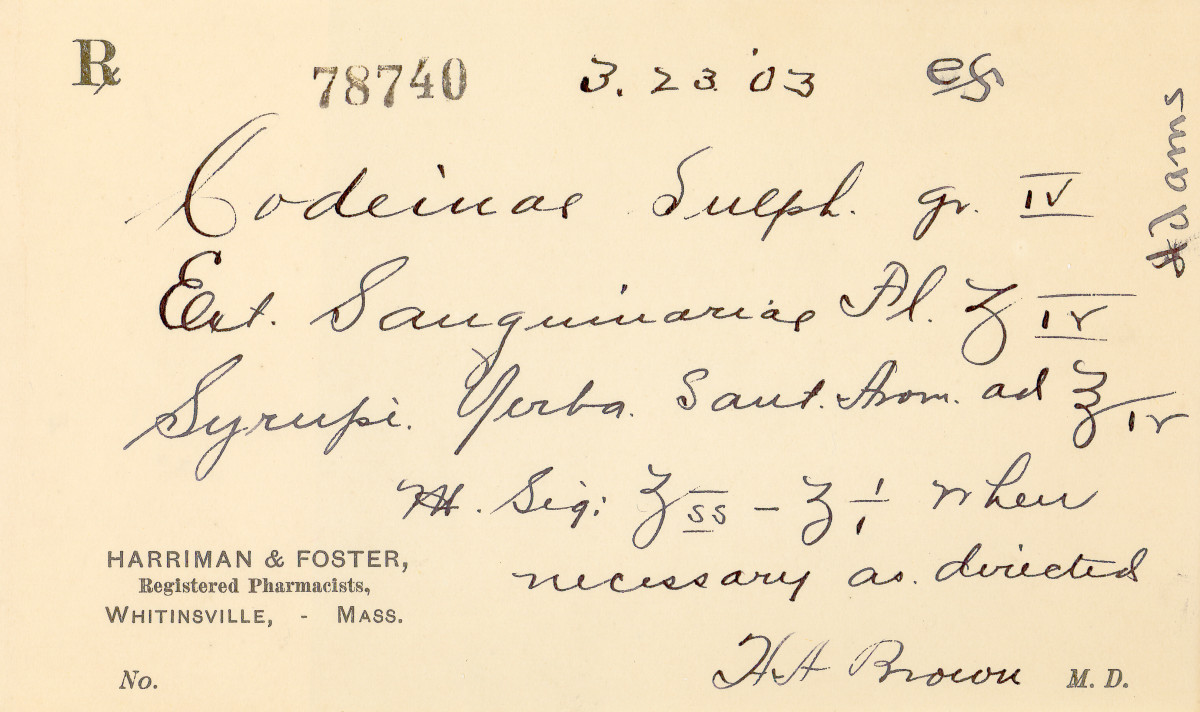 ℞ 78740 3. 23 '03
Adams
Codeinae Sulph. gr. IV
Ext. Sanguinariae Fl. ʒ IV
Syrupi. Yerba. Sant. Arom. ad ℥ IV
M. Sig: ʒ ss – ʒ i when
necessary as. directed
HARRIMAN & FOSTER,
Registered Pharmacists,
WHITINSVILLE, - MASS.
H A Brown M. D.
No.